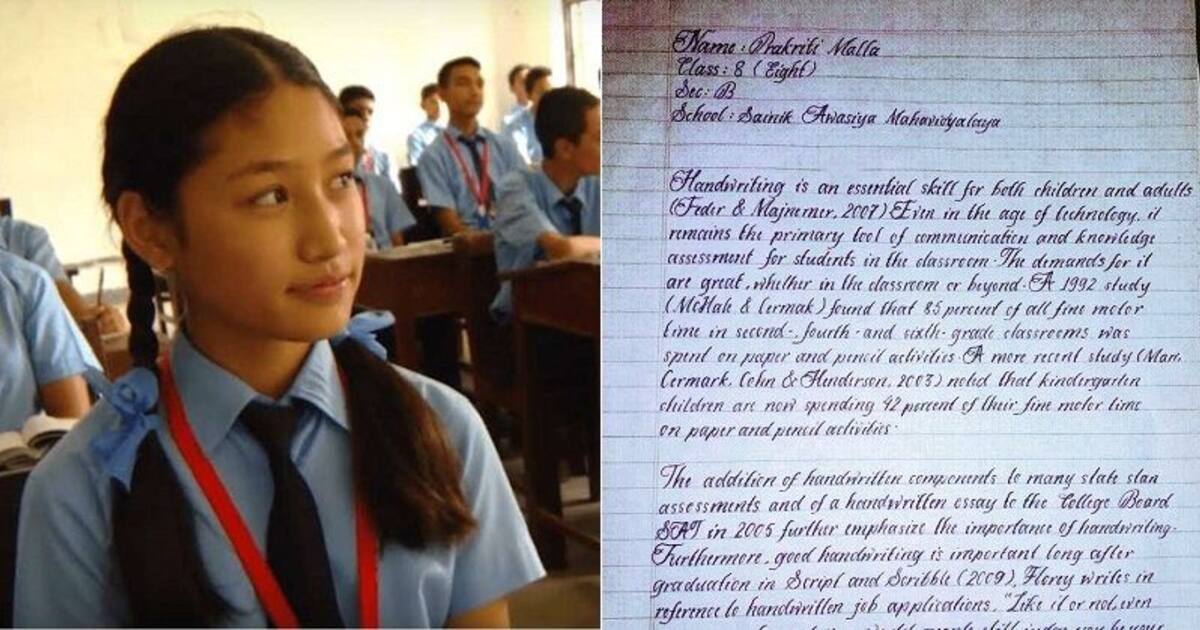 Name: Prakriti Malla
Class: 8 (Eight)
Sec: B
School: Sainik Awasiya Mahavidyalaya
Handwriting is an essential skill for both children and adults
(Feder & Majnemer, 2007) Even in the age of technology, it
remains the primary tool of communication and knowledge
assessment for students in the classroom. The demands for it
are great, whether in the classroom or beyond. A 1992 study
(McHale & Cermak) found that 85 percent of all fine motor
time in second-, fourth- and sixth- grade classrooms was
spent on paper and pencil activities. A more recent study (Marr,
Cermark, Cohn & Henderson, 2003) noted that kindergarten
children are now spending 42 percent of their fine motor time
on paper and pencil activities.
The addition of handwritten components to many state stan
assessments and of a handwritten essay to the College Board
SAT in 2005 further emphasize the importance of handwriting.
Furthermore, good handwriting is important long after
graduation in Script and Scribble (2009), Florey writes in
reference to handwritten job applications, "Like it or not, even